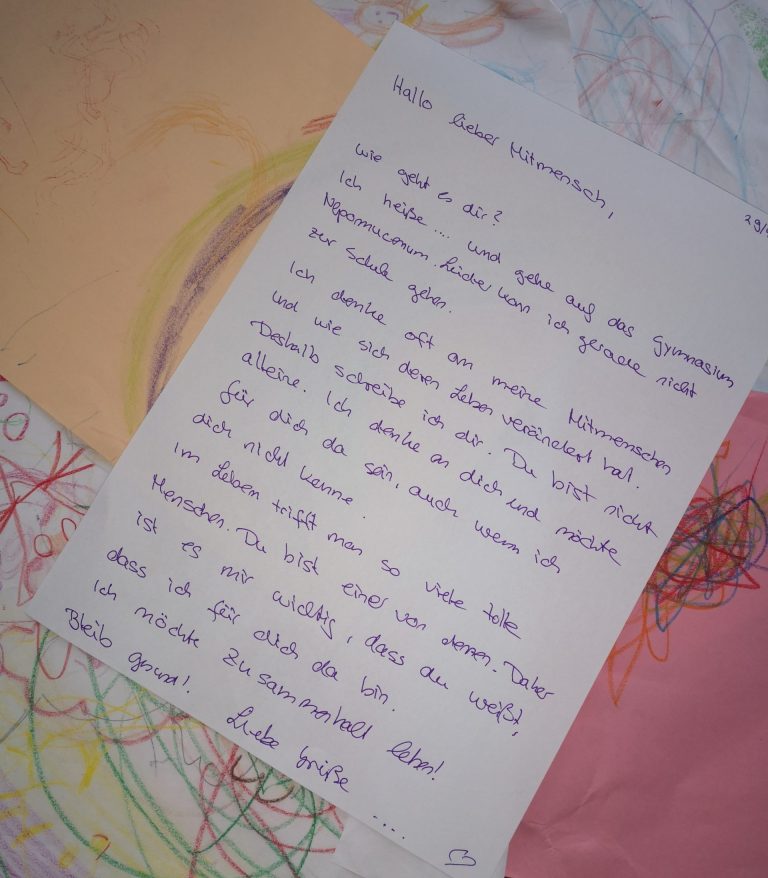 Hallo lieber Mitmensch,
29/
wie geht es dir?
Ich heiße .... und gehe auf das Gymnasium
Nepomucenum. Leider kann ich gerade nicht
zur Schule gehen.
Ich denke oft an meine Mitmenschen
und wie sich deren Leben verändert hat.
Deshalb schreibe ich dir. Du bist nicht
alleine. Ich denke an dich und möchte
für dich da sein, auch wenn ich
dich nicht kenne.
Im Leben trifft man so viele tolle
Menschen. Du bist einer von denen. Daher
ist es mir wichtig, dass du weißt,
dass ich für dich da bin.
Ich möchte Zusammenhalt leben!
Bleib gesund!
Liebe Grüße
....